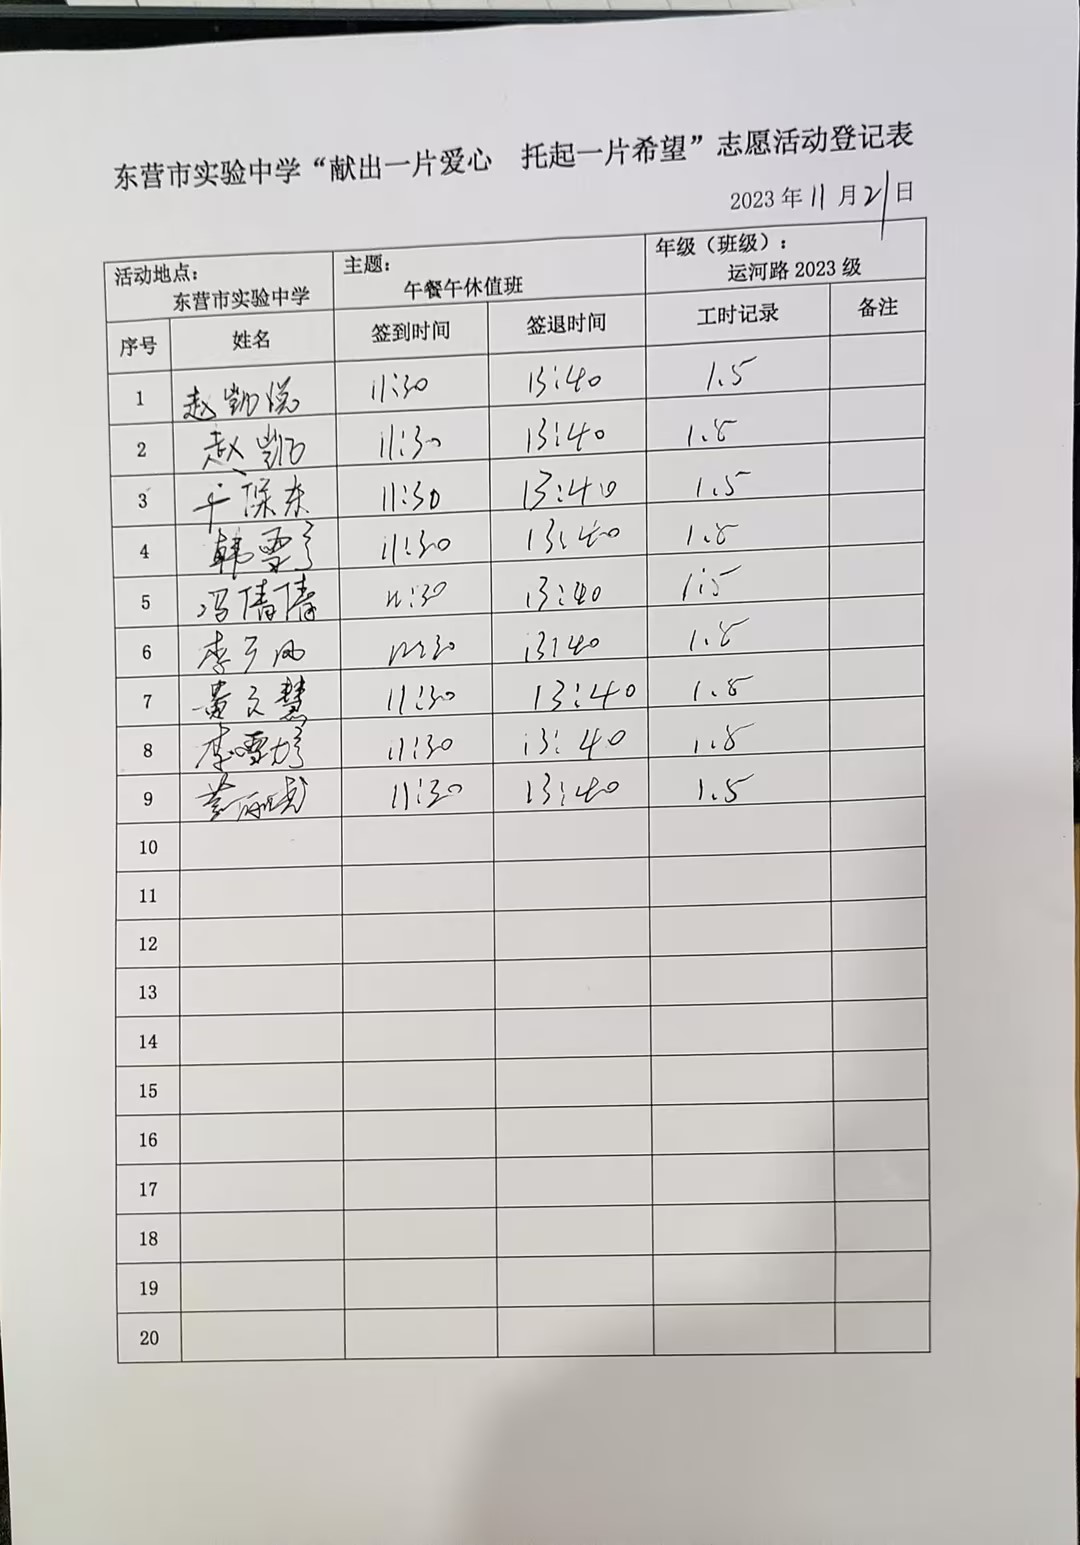 东营市实验中学“献出一片爱心 托起一片希望”志愿活动登记表
2023 年 11 月 21 日
活动地点： 主题： 年级（班级）：
东营市实验中学 午餐午休值班 运河路 2023 级
序号 姓名 签到时间 签退时间 工时记录 备注
1 赵凯悦 11:30 13:40 1.5
2 赵凯 11:30 13:40 1.5
3 11:30 13:40 1.5
4 韩雪 11:30 13:40 1.5
5 冯倩倩 11:30 13:40 1.5
6 李 11:30 13:40 1.5
7 黄文慧 11:30 13:40 1.5
8 李雪 11:30 13:40 1.5
9 11:30 13:40 1.5
10
11
12
13
14
15
16
17
18
19
20